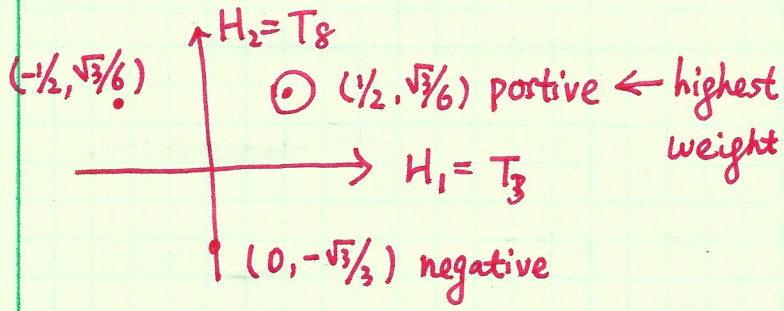 H₂ = T₈
(-1/2, √3/6)
(1/2, √3/6) postive ← highest weight
H₁ = T₃
(0, -√3/3) negative